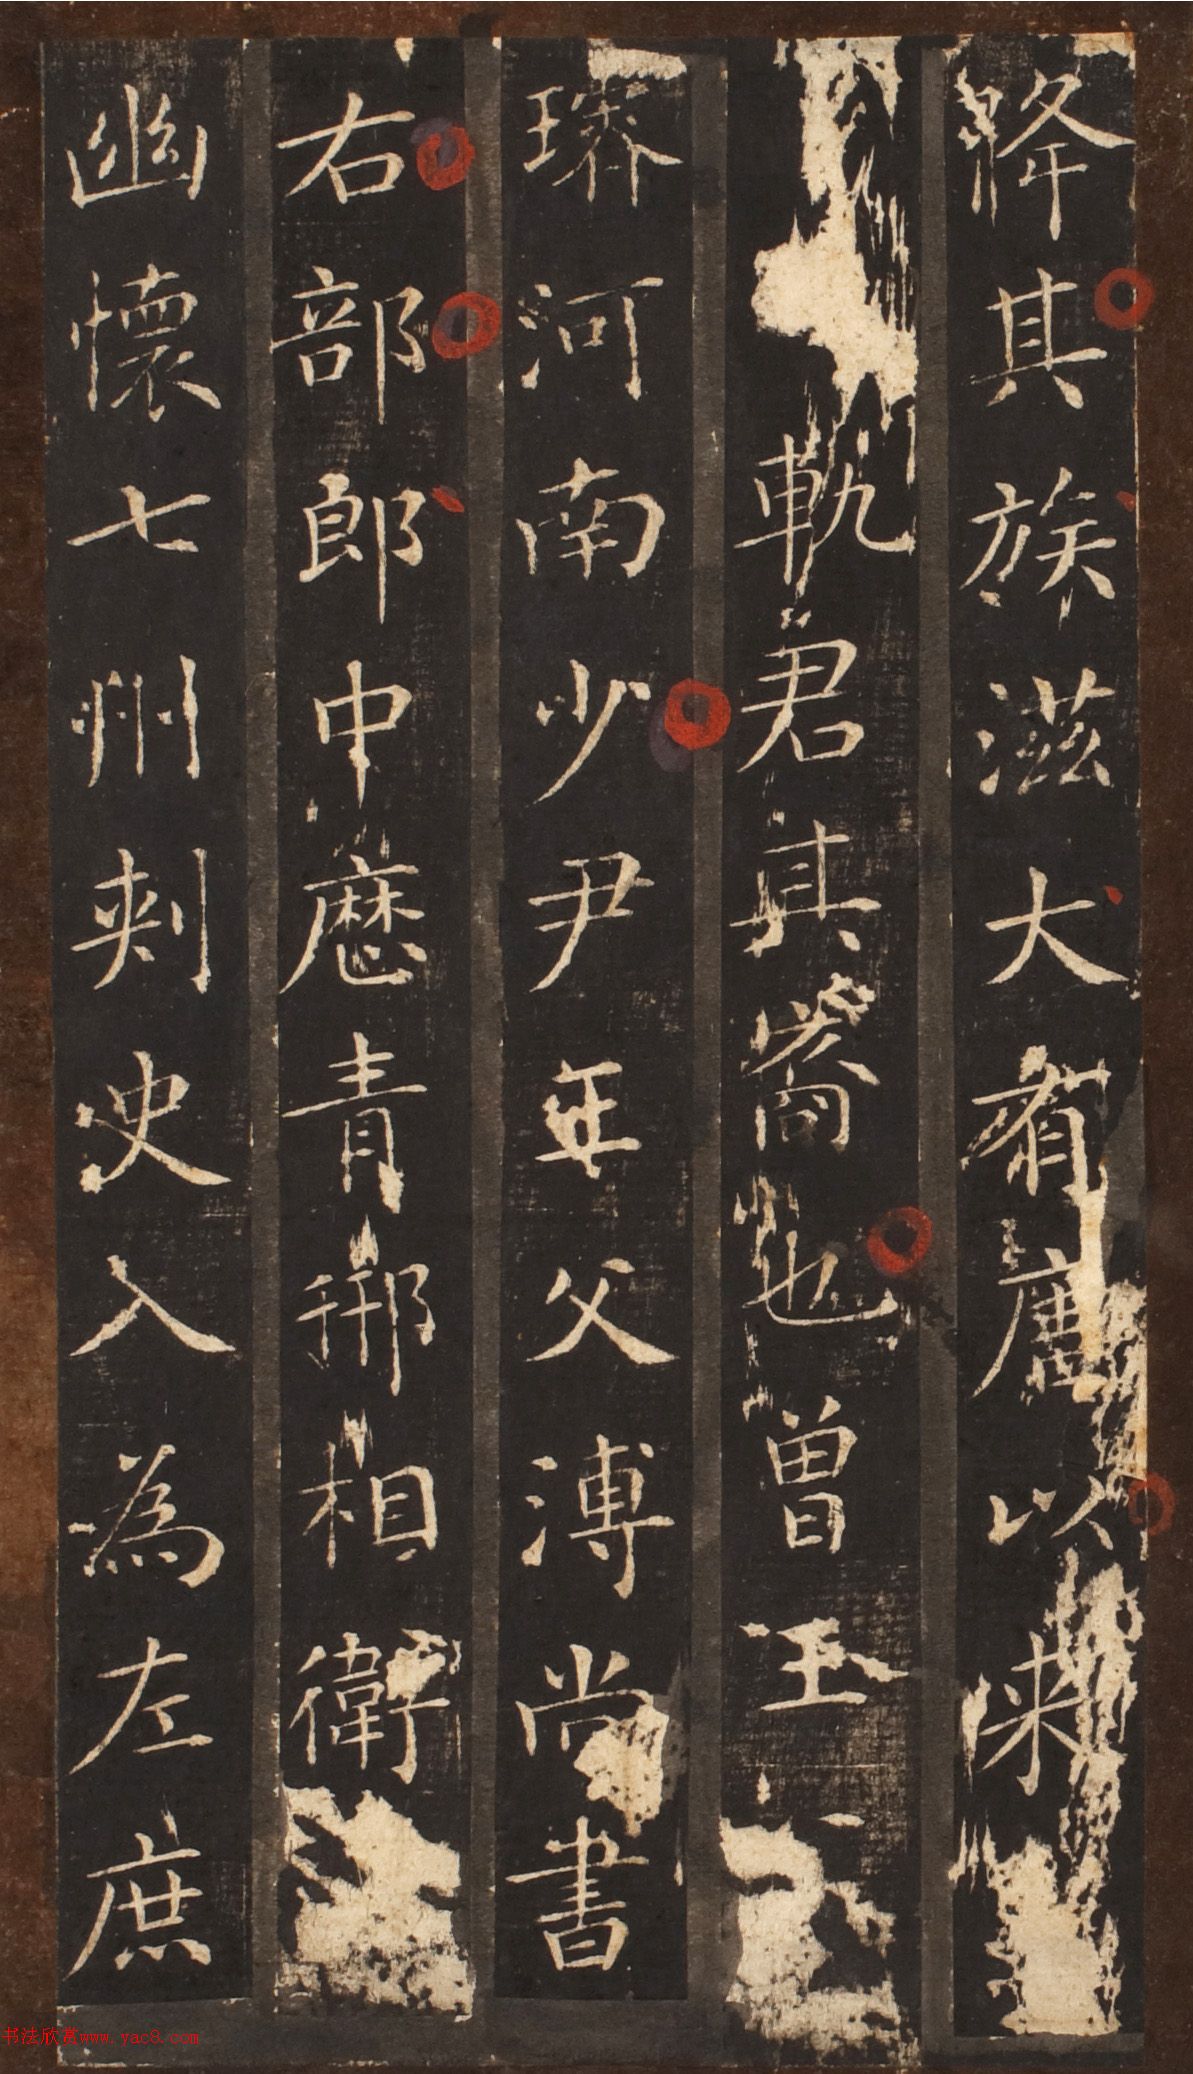 降其族滋大有唐以来
軌君其裔也曾王
河南少尹王父溥尚書
右部郎中歷青邢相衛
幽懷七州刺史入為左庶
书法欣赏www.yac8.com